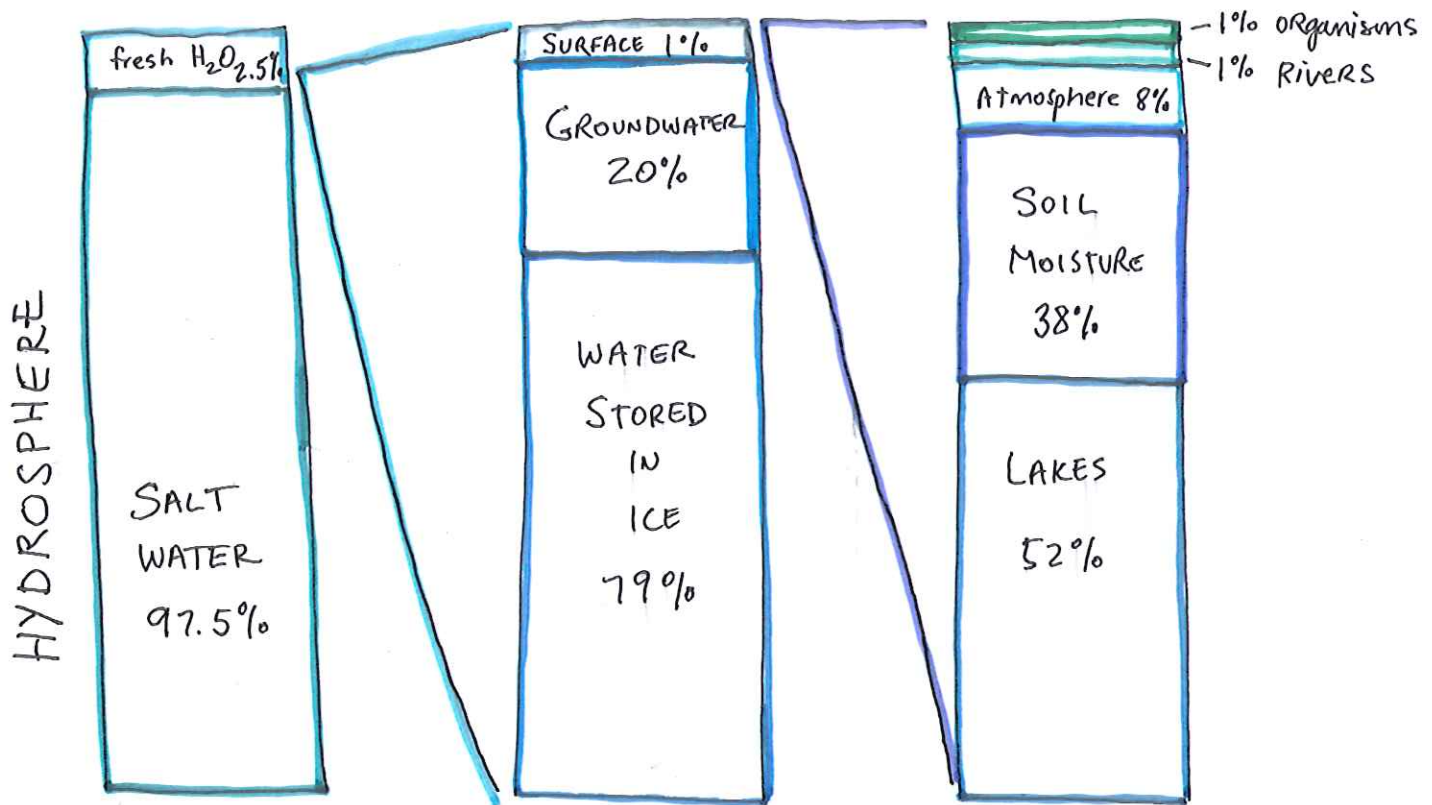 HYDROSPHERE
fresh H₂O 2.5%
SALT
WATER
97.5%
SURFACE 1%
GROUNDWATER
20%
WATER
STORED
IN
ICE
79%
1% organisms
1% RIVERS
Atmosphere 8%
SOIL
MOISTURE
38%
LAKES
52%